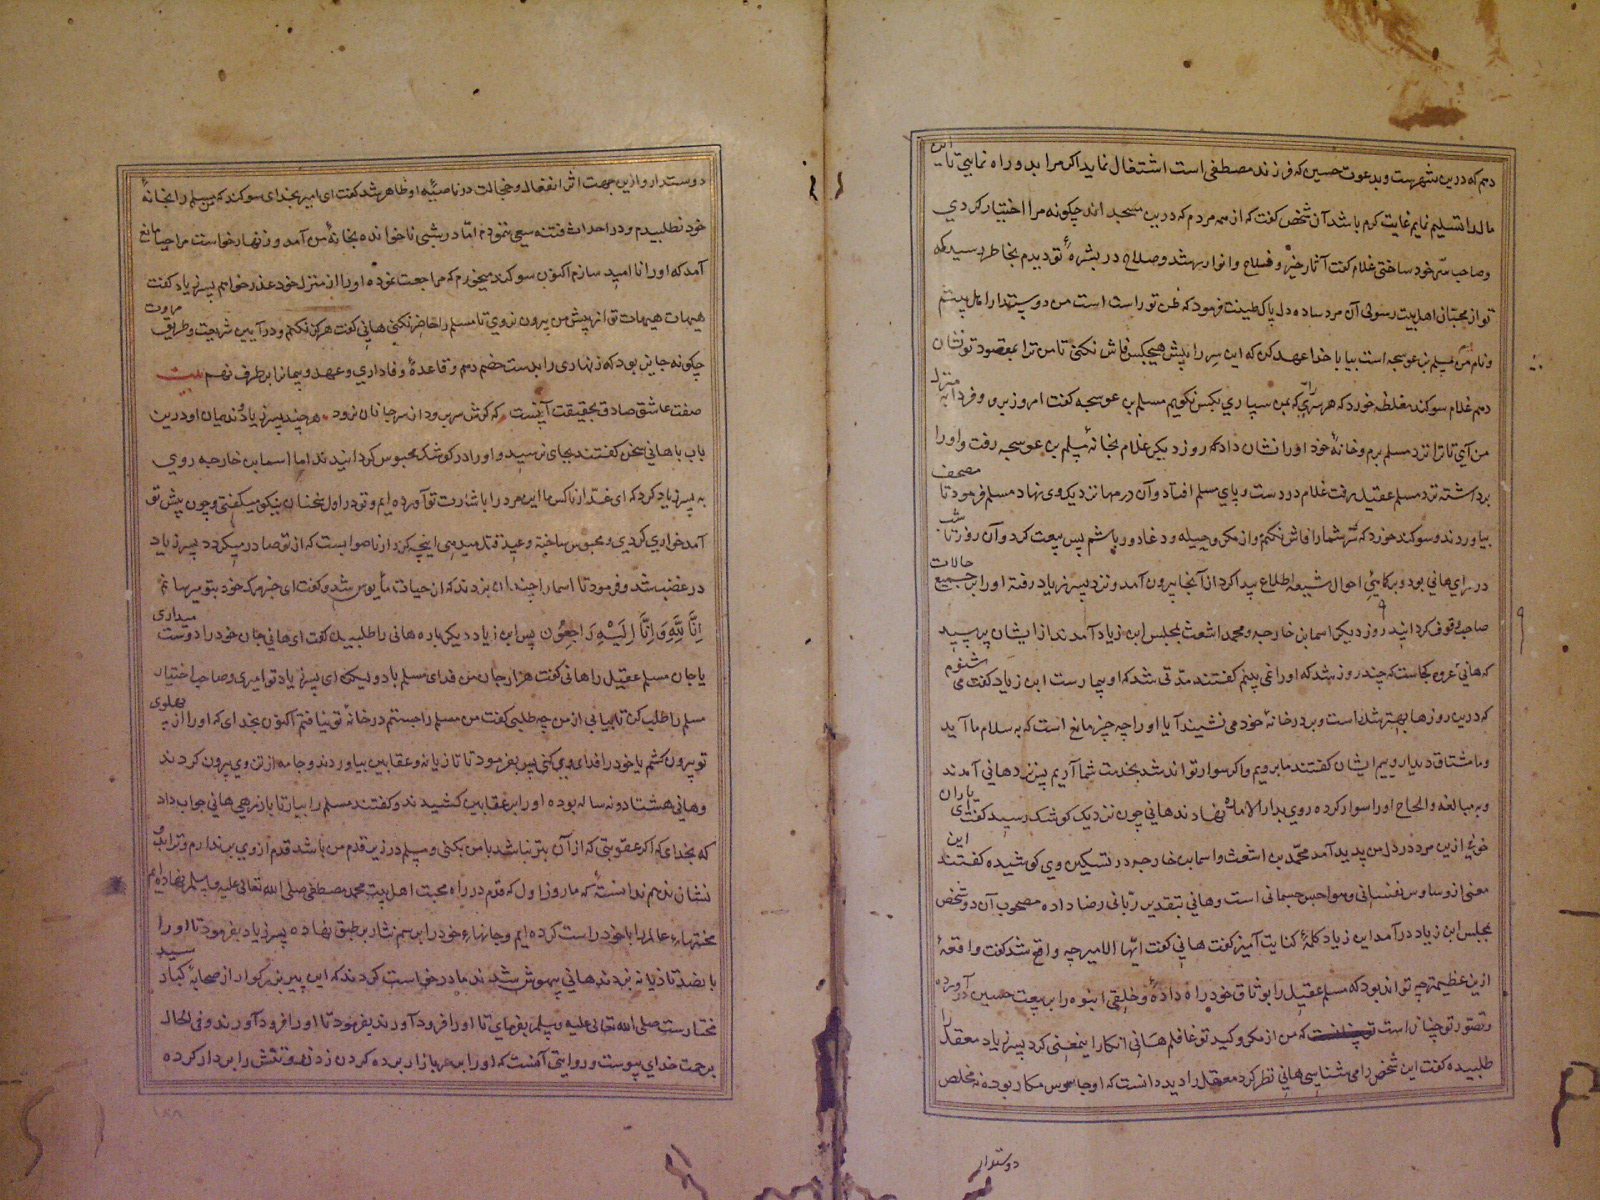 دهم که درین شهرست و بدعوت حسین که فرزند مصطفی است اشتغال نماید اکر مرا بدو راه نمایی تا این
مال را تسلیم نمایم غایت کرم باشد آن شخص کفت که از همه مردم که درین مسجد اند چکونه مرا اختیار کردي
و صاحب سّر خود ساختی غلام کفت آثار خیر و فلاح و انوار رشد و صلاح در بشرهٔ تو دیدم بخاطر رسید که
تو از محبّان اهل بیت رسولی آن مرد ساده دل پاک طینت فرمود که ظن تو راست است من دوستدار اهل بیتم
و نام من مسلم بن عوسجه است بیا با خدا عهد کن که این سر را پیش هیچکس فاش نکنی تا من ترا بمقصود تو نشان
دهم غلام سوکند مغلظه خورد که هر سّري را که بمن سپاري بکس نکویم مسلم بن عوسجه کفت امروز برو و فردا به منزل
من آي تا ترا نزد مسلم برم و خانهٔ خود اورا نشان داد که روز دیکر غلام بخانهٔ مسلم بن عوسجه رفت و اورا
برداشته نزد مسلم عقیل رفت غلام در دست و پاي مسلم افتاد و آن درمها نزدیک وي نهاد مسلم فرمود تا مصحف
بیاوردند و سوکند خورد که سّر شما را فاش نکنم و از مکر و حیله و دغا دور باشم پس بیعت کرد و آن روز تا شب
در سراي هانی بود و بکلیّهٔ احوال شیعه اطلاع پیدا کرد از آنجا بیرون آمد و نزد پسر زیاد رفته اورا بر جمیع حالات
صاحب وقوف کردانید روز دیکر اسما بن خارجه و محمد اشعث بمجلس ابن زیاد آمدند از ایشان پرسید
که هانی عروه کجاست که چند روز شد که اورا نمی بینم کفتند مدّتی شد که او بیمارست ابن زیاد کفت می شنوم
که درین روزها بهتر شده است و بر در خانهٔ خود می نشیند آیا اورا چه چیز مانع است که به سلام ما آید
و ما مشتاق دیدار وییم ایشان کفتند ما برویم و اکر سوار تواند شد بخدمت شما آریم پس نزد هانی آمدند
و به مبالغه و الحاح اورا سوار کرده روي بدار الاماره نهادند هانی چون نزدیک کوشک رسید کفت ای یاران
خوفی ازین مرد در دل من پدید آمد محمّد بن اشعث و اسما بن خارجه در تسکین وي کوشیده کفتند این
معنی از وساوس نفسانی و هواجس جسمانی است و هانی بتقدیر ربّانی رضا داده مصحوب آن دو شخص
بمجلس ابن زیاد در آمد ابن زیاد کلمهٔ کنایت آمیز کفت هانی کفت ایّها الامیر چه واقع شد کفت واقعهٔ
ازین عظیمتر چه تواند بود که مسلم عقیل را بوثاق خود راه دادهٔ و خلقی انبوه را بر بیعت حسین در آورده
و تصّور تو چنان است که من از مکر و کید تو غافلم هانی انکار این معنی کرد پسر زیاد معقل را
طلبیده کفت این شخص را می شناسی هانی نظر کرد معقل را دید دانست که او جاسوس مکار بوده نه مخلص
دوستدار
دوستدار و ازین جهت اثر انفعال و خجالت در ناصیّهٔ او ظاهر شد کفت ای امیر بخدای سوکند که من مسلم را بخانهٔ
خود نطلبیدم و در احداث فتنه سعی ننمودم امّا در شبی ناخوانده بخانهٔ من آمد و زنهار خواست مرا حیا مانع
آمد که اورا نا امید سازم اکنون سوکند میخورم که مراجعت نموده اورا از منزل خود عذر خواهم پسر زیاد کفت
هیهات هیهات تو از پیش من بیرون نروي تا مسلم را حاضر نکنی هانی کفت هرکز نکنم و در آیین شریعت و طریق مروت
چکونه جایز بود که زنهاری را بدست خصم دهم و قاعدهٔ وفاداري و عهد و پیمان را بر طرف نهم بیت
صفت عاشق صادق بحقیقت آنست که کرش سر برود از سر جانان نرود هر چند پسر زیاد و ندیمان او درین
باب با هانی سخن کفتند بجای نرسید و اورا در کوشک محبوس کردانیدند اما اسما بن خارجه روي
به پسر زیاد کرد که ای غدّار ناکس ما این مرد را باشارت تو آورده ایم و تو در اول سخنان نیکو میکفتی و چون پیش تو
آمد خواري کردي و محبوس ساختهٔ و وعید قتل میدهی این چه کردار ناصوابست که از تو صادر میکردد پسر زیاد
در غضب شد و فرمود تا اسما را چندان بزدند که از حیات مأیوس شد و کفت ای خبر مرک خود بتو میرسانم
اِنَّا لِلّٰهِ وَاِنَّا اِلَیْهِ رَاجِعُون پس ابن زیاد دیکر باره هانی را طلبید کفت ای هانی جان خود را دوست میداری
یا جان مسلم عقیل را هانی کفت هزار جان من فدای مسلم باد و لیکن ای پسر زیاد تو امیری و صاحب اختیار
مسلم را طلب کن تا بیابی از من چه طلبی کفت من مسلم را جستم در خانهٔ تو یافتم اکنون بخدای که اورا از پهلوی
تو بیرون کشم یا خود را فدای وی کنی پس بفرمود تا تازیانه و عقابین بیاوردند و جامه از تن وی بیرون کردند
و هانی هشتاد و نه ساله بود اورا بر عقابین کشیدند و کفتند مسلم را بیار تا باز رهی هانی جواب داد
که بخدای که اکر عقوبتی که از آن بتر نباشد با من بکنی و مسلم در زیر قدم من باشد قدم از وي بر ندارم و ترا بدو
نشان ندهم ندانستهٔ که ما روز اول که قدم در راه محبت اهل بیت محمد مصطفی صلی الله تعالی علیه وسلم نهاده ایم
محنتهاء عالم را با خود راست کرده ایم و جانهاء خود را برسم نثار بر طبق نهاده پسر زیاد بفرمود تا اورا
پانصد تازیانه بزدند هانی بیهوش شد ندما درخواست کردند که این پیر بزرکوار از صحابهٔ کبار سید
مختارست صلی الله تعالی علیه وسلم بفرمای تا اورا فرود آورند بفرمود تا اورا فرود آوردند و فی الحال
برحمت خدای پیوست و روایتی آنست که اورا بر سر بازار برده کردن زدند و تنش را بردار کرده